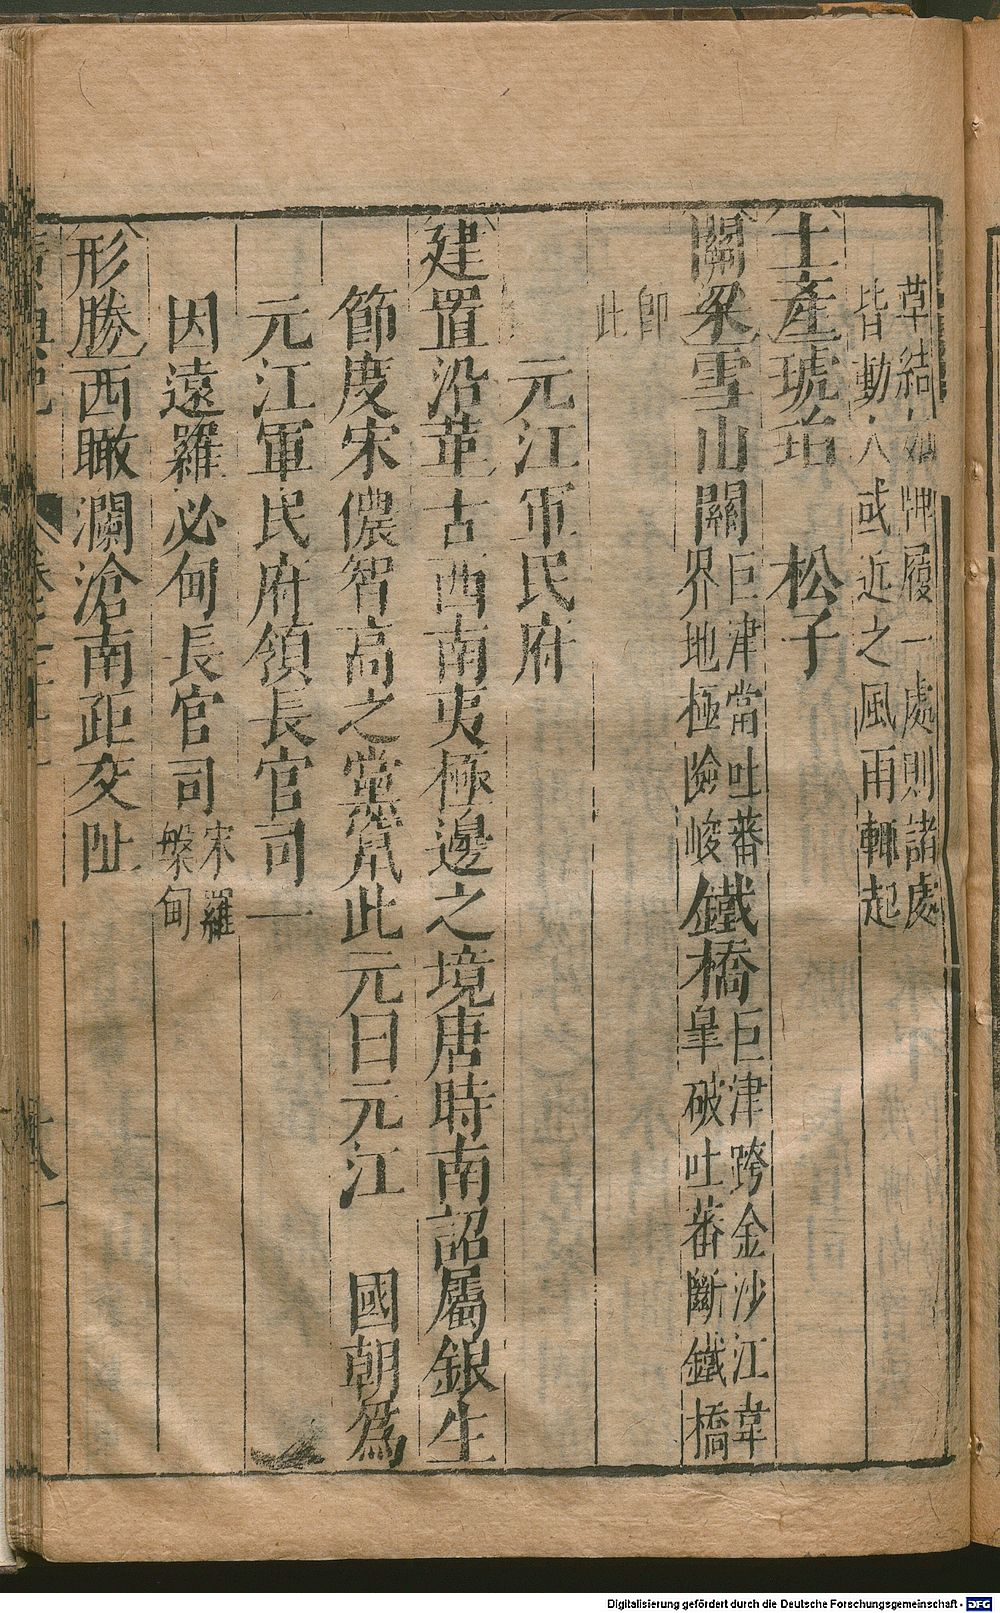 草結如艸履一處則諸處
皆動人或近之風雨輒起
土產琥珀 松子
關梁雪山關
巨津當吐蕃
界地極險峻
鐵橋
巨津跨金沙江韋
皐破吐蕃斷鐵橋
卽
此
元江軍民府
建置沿革古西南夷極邊之境唐時南詔屬銀生
節度宋儂智高之黨䆿此元曰元江 國朝爲
元江軍民府領長官司一
因遠羅必甸長官司
宋羅
槃甸
形勝西瞰瀾滄南距交趾
Digitalisierung gefördert durch die Deutsche Forschungsgemeinschaft - DFG